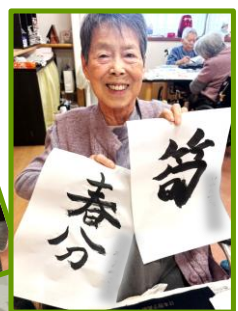 春分
筍